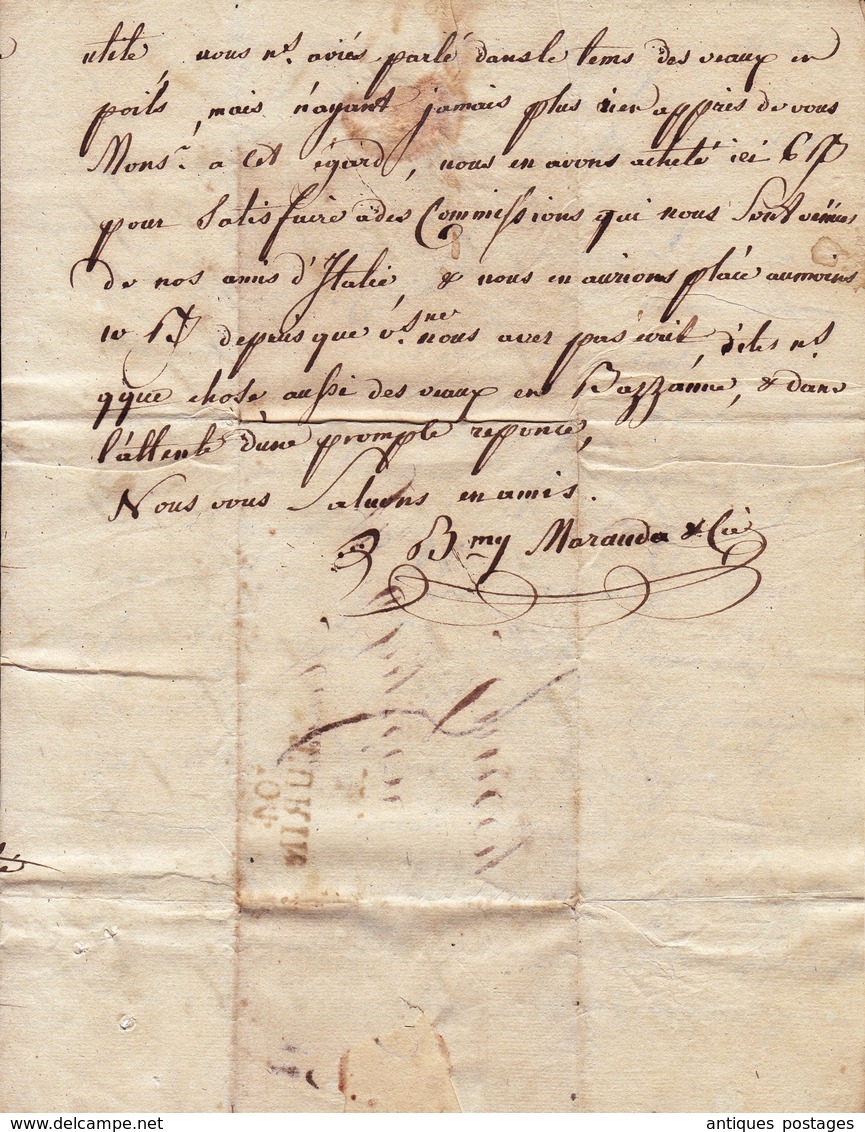 utité vous nˢ. aviés parlé dans le tems des veaux en
poils, mais n'ayant jamais plus rien appris de vous
Monsʳ. a cet égard, nous en avons acheté ici 6
pour Satisfaire a des Commissions qui nous sont venues
de nos amis d'Italie & nous en aurions placé au moins
10 depuis que nous avez pas écrit, dites nˢ.
qque chose aussi des veaux en Bazzánne, & dans
l'attente d'une prompte reponce,
Nous vous Saluons en amis.
Bmy Marauda & Cie
TURIN
104
té
antiques postages